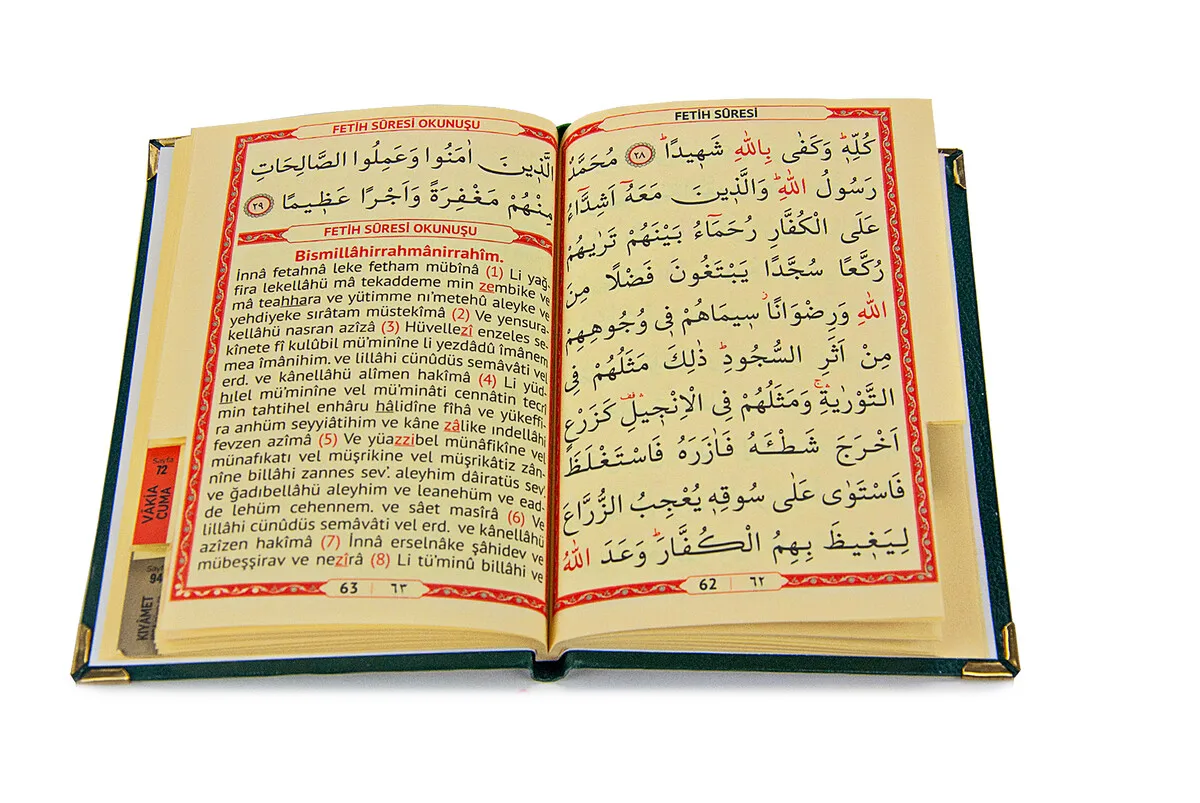 FETİH SÛRESİ
كُلِّهٖۜ وَكَفٰى بِاللّٰهِ شَهٖيدًاۜ ﴿٢٨﴾ مُحَمَّدٌ
رَسُولُ اللّٰهِۜ وَالَّذٖينَ مَعَهُٓ اَشِدَّٓاءُ
عَلَى الْكُفَّارِ رُحَمَٓاءُ بَيْنَهُمْ تَرٰيهُمْ
رُكَّعًا سُجَّدًا يَبْتَغُونَ فَضْلًا مِنَ
اللّٰهِ وَرِضْوَانًاۘ سٖيمَاهُمْ فٖى وُجُوهِهِمْ
مِنْ اَثَرِ السُّجُودِۜ ذٰلِكَ مَثَلُهُمْ فِى
التَّوْرٰيةِۚۛ وَمَثَلُهُمْ فِى الْاِنْجٖيلِ۠ۛ كَزَرْعٍ
اَخْرَجَ شَطْـَٔهُ فَاٰزَرَهُ فَاسْتَغْلَظَ
فَاسْتَوٰى عَلٰى سُوقِهٖ يُعْجِبُ الزُّرَّاعَ
لِيَغٖيظَ بِهِمُ الْكُفَّارَۜ وَعَدَ اللّٰهُ
62 | ٦٢
FETİH SÛRESİ OKUNUŞU
الَّذٖينَ اٰمَنُوا وَعَمِلُوا الصَّالِحَاتِ
مِنْهُمْ مَغْفِرَةً وَاَجْرًا عَظٖيمًا ﴿٢٩﴾
FETİH SÛRESİ OKUNUŞU
Bismillâhirrahmânirrahîm.
İnnâ fetahnâ leke fetham mübînâ (1) Li yağ-
fira lekellâhü mâ tekaddeme min zembike ve
mâ teahhara ve yütimme nı’metehû aleyke ve
yehdiyeke sırâtam müstekîmâ (2) Ve yensura-
kellâhü nasran azîzâ (3) Hüvellezî enzeles se-
kînete fî kulûbil mü’minîne li yezdâdû îmânem
mea îmânihim. ve lillâhi cünûdüs semâvâti vel
erd. ve kânellâhü alîmen hakîmâ (4) Li yüd-
hılel mü’minîne vel mü’minâti cennâtin tecrî
min tahtihel enhâru hâlidîne fîhâ ve yükeffi-
ra anhüm seyyiâtihim ve kâne zâlike ındellâhi
fevzen azîmâ (5) Ve yüazzibel münâfikîne vel
münafıkatı vel müşrikîne vel müşrikâtiz zân-
nîne billâhi zannes sev’. aleyhim dâiratüs sev’
ve ğadıbellâhü aleyhim ve leanehüm ve ead-
de lehüm cehennem. ve sâet masîrâ (6) Ve
lillâhi cünûdüs semâvâti vel erd. ve kânellâhü
azîzen hakîmâ (7) İnnâ erselnâke şâhidev ve
mübeşşirav ve nezîrâ (8) Li tü’minû billâhi ve
63 | ٦٣
Sayfa
72
VÂKIA
CUMA
Sayfa
94
KIYÂMET